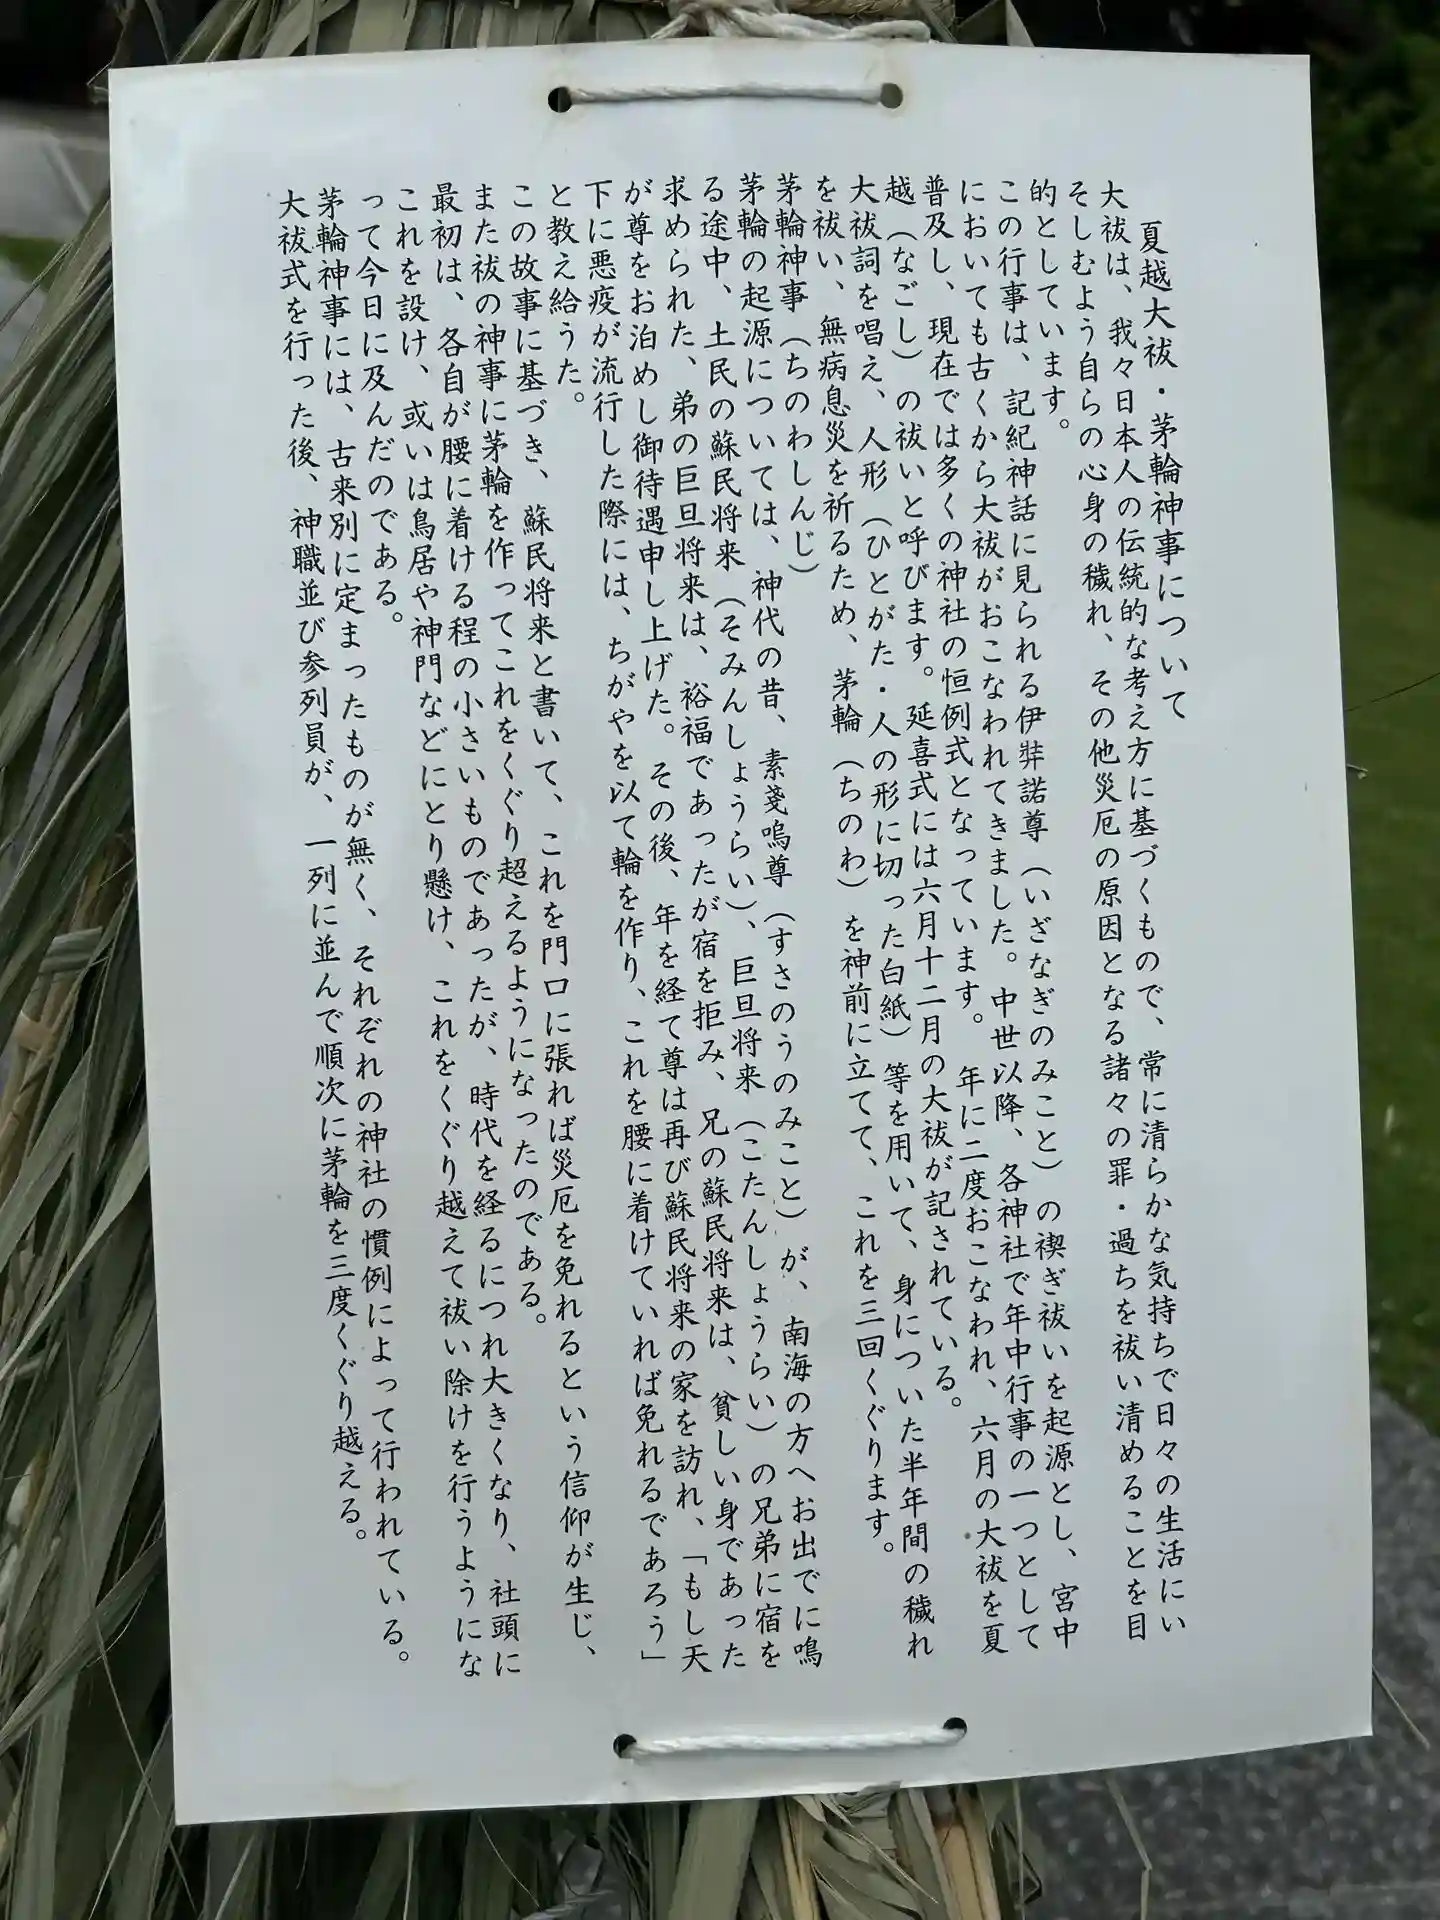 夏越大祓・茅輪神事について
大祓は、我々日本人の伝統的な考え方に基づくもので、常に清らかな気持ちで日々の生活にい
そしむよう自らの心身の穢れ、その他災厄の原因となる諸々の罪・過ちを祓い清めることを目
的としています。
この行事は、記紀神話に見られる伊弉諾尊（いざなぎのみこと）の禊ぎ祓いを起源とし、宮中
においても古くから大祓がおこなわれてきました。中世以降、各神社で年中行事の一つとして
普及し、現在では多くの神社の恒例式となっています。年に二度おこなわれ、六月の大祓を夏
越（なごし）の祓いと呼びます。延喜式には六月十二月の大祓が記されている。
大祓詞を唱え、人形（ひとがた・人の形に切った白紙）等を用いて、身についた半年間の穢れ
を祓い、無病息災を祈るため、茅輪（ちのわ）を神前に立てて、これを三回くぐります。
茅輪神事（ちのわしんじ）
茅輪の起源については、神代の昔、素戔嗚尊（すさのうのみこと）が、南海の方へお出でに鳴
る途中、土民の蘇民将来（そみんしょうらい）、巨旦将来（こたんしょうらい）の兄弟に宿を
求められた、弟の巨旦将来は、裕福であったが宿を拒み、兄の蘇民将来は、貧しい身であった
が尊をお泊めし御待遇申し上げた。その後、年を経て尊は再び蘇民将来の家を訪れ、「もし天
下に悪疫が流行した際には、ちがやを以て輪を作り、これを腰に着けていれば免れるであろう」
と教え給うた。
この故事に基づき、蘇民将来と書いて、これを門口に張れば災厄を免れるという信仰が生じ、
また祓の神事に茅輪を作ってこれをくぐり超えるようになったのである。
最初は、各自が腰に着ける程の小さいものであったが、時代を経るにつれ大きくなり、社頭に
これを設け、或いは鳥居や神門などにとり懸け、これをくぐり越えて祓い除けを行うようにな
って今日に及んだのである。
茅輪神事には、古来別に定まったものが無く、それぞれの神社の慣例によって行われている。
大祓式を行った後、神職並び参列員が、一列に並んで順次に茅輪を三度くぐり越える。